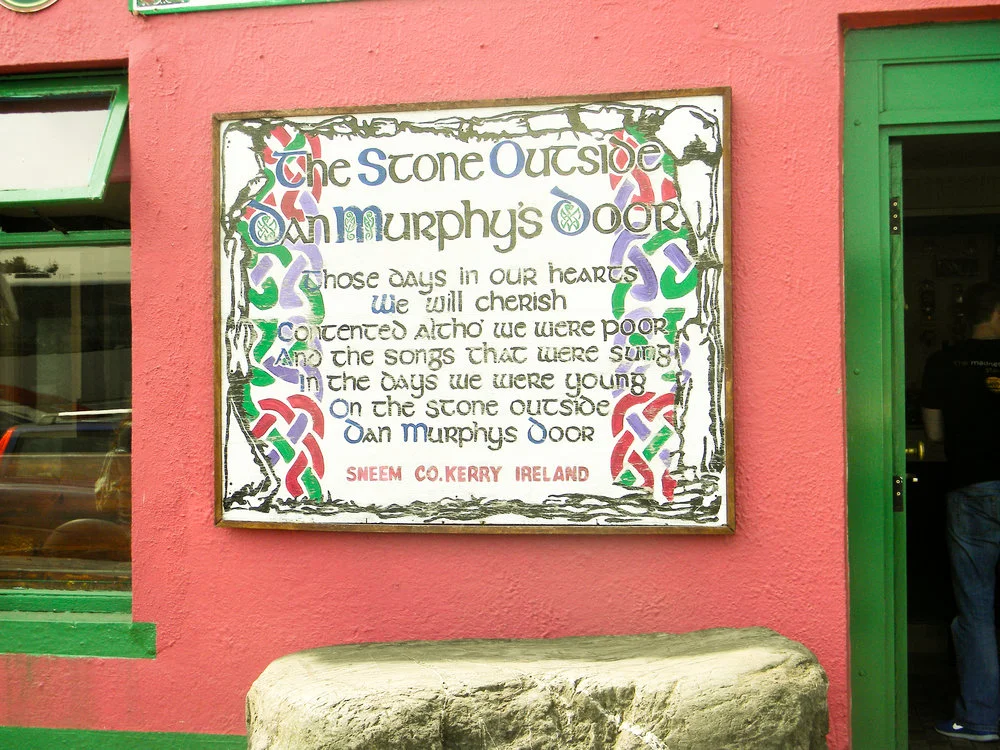 The Stone Outside
Dan Murphy's Door
Those days in our hearts
We will cherish
Contented altho' we were poor
And the songs that were sung
In the days we were young
On the stone outside
Dan Murphys Door
SNEEM CO.KERRY IRELAND
the madne